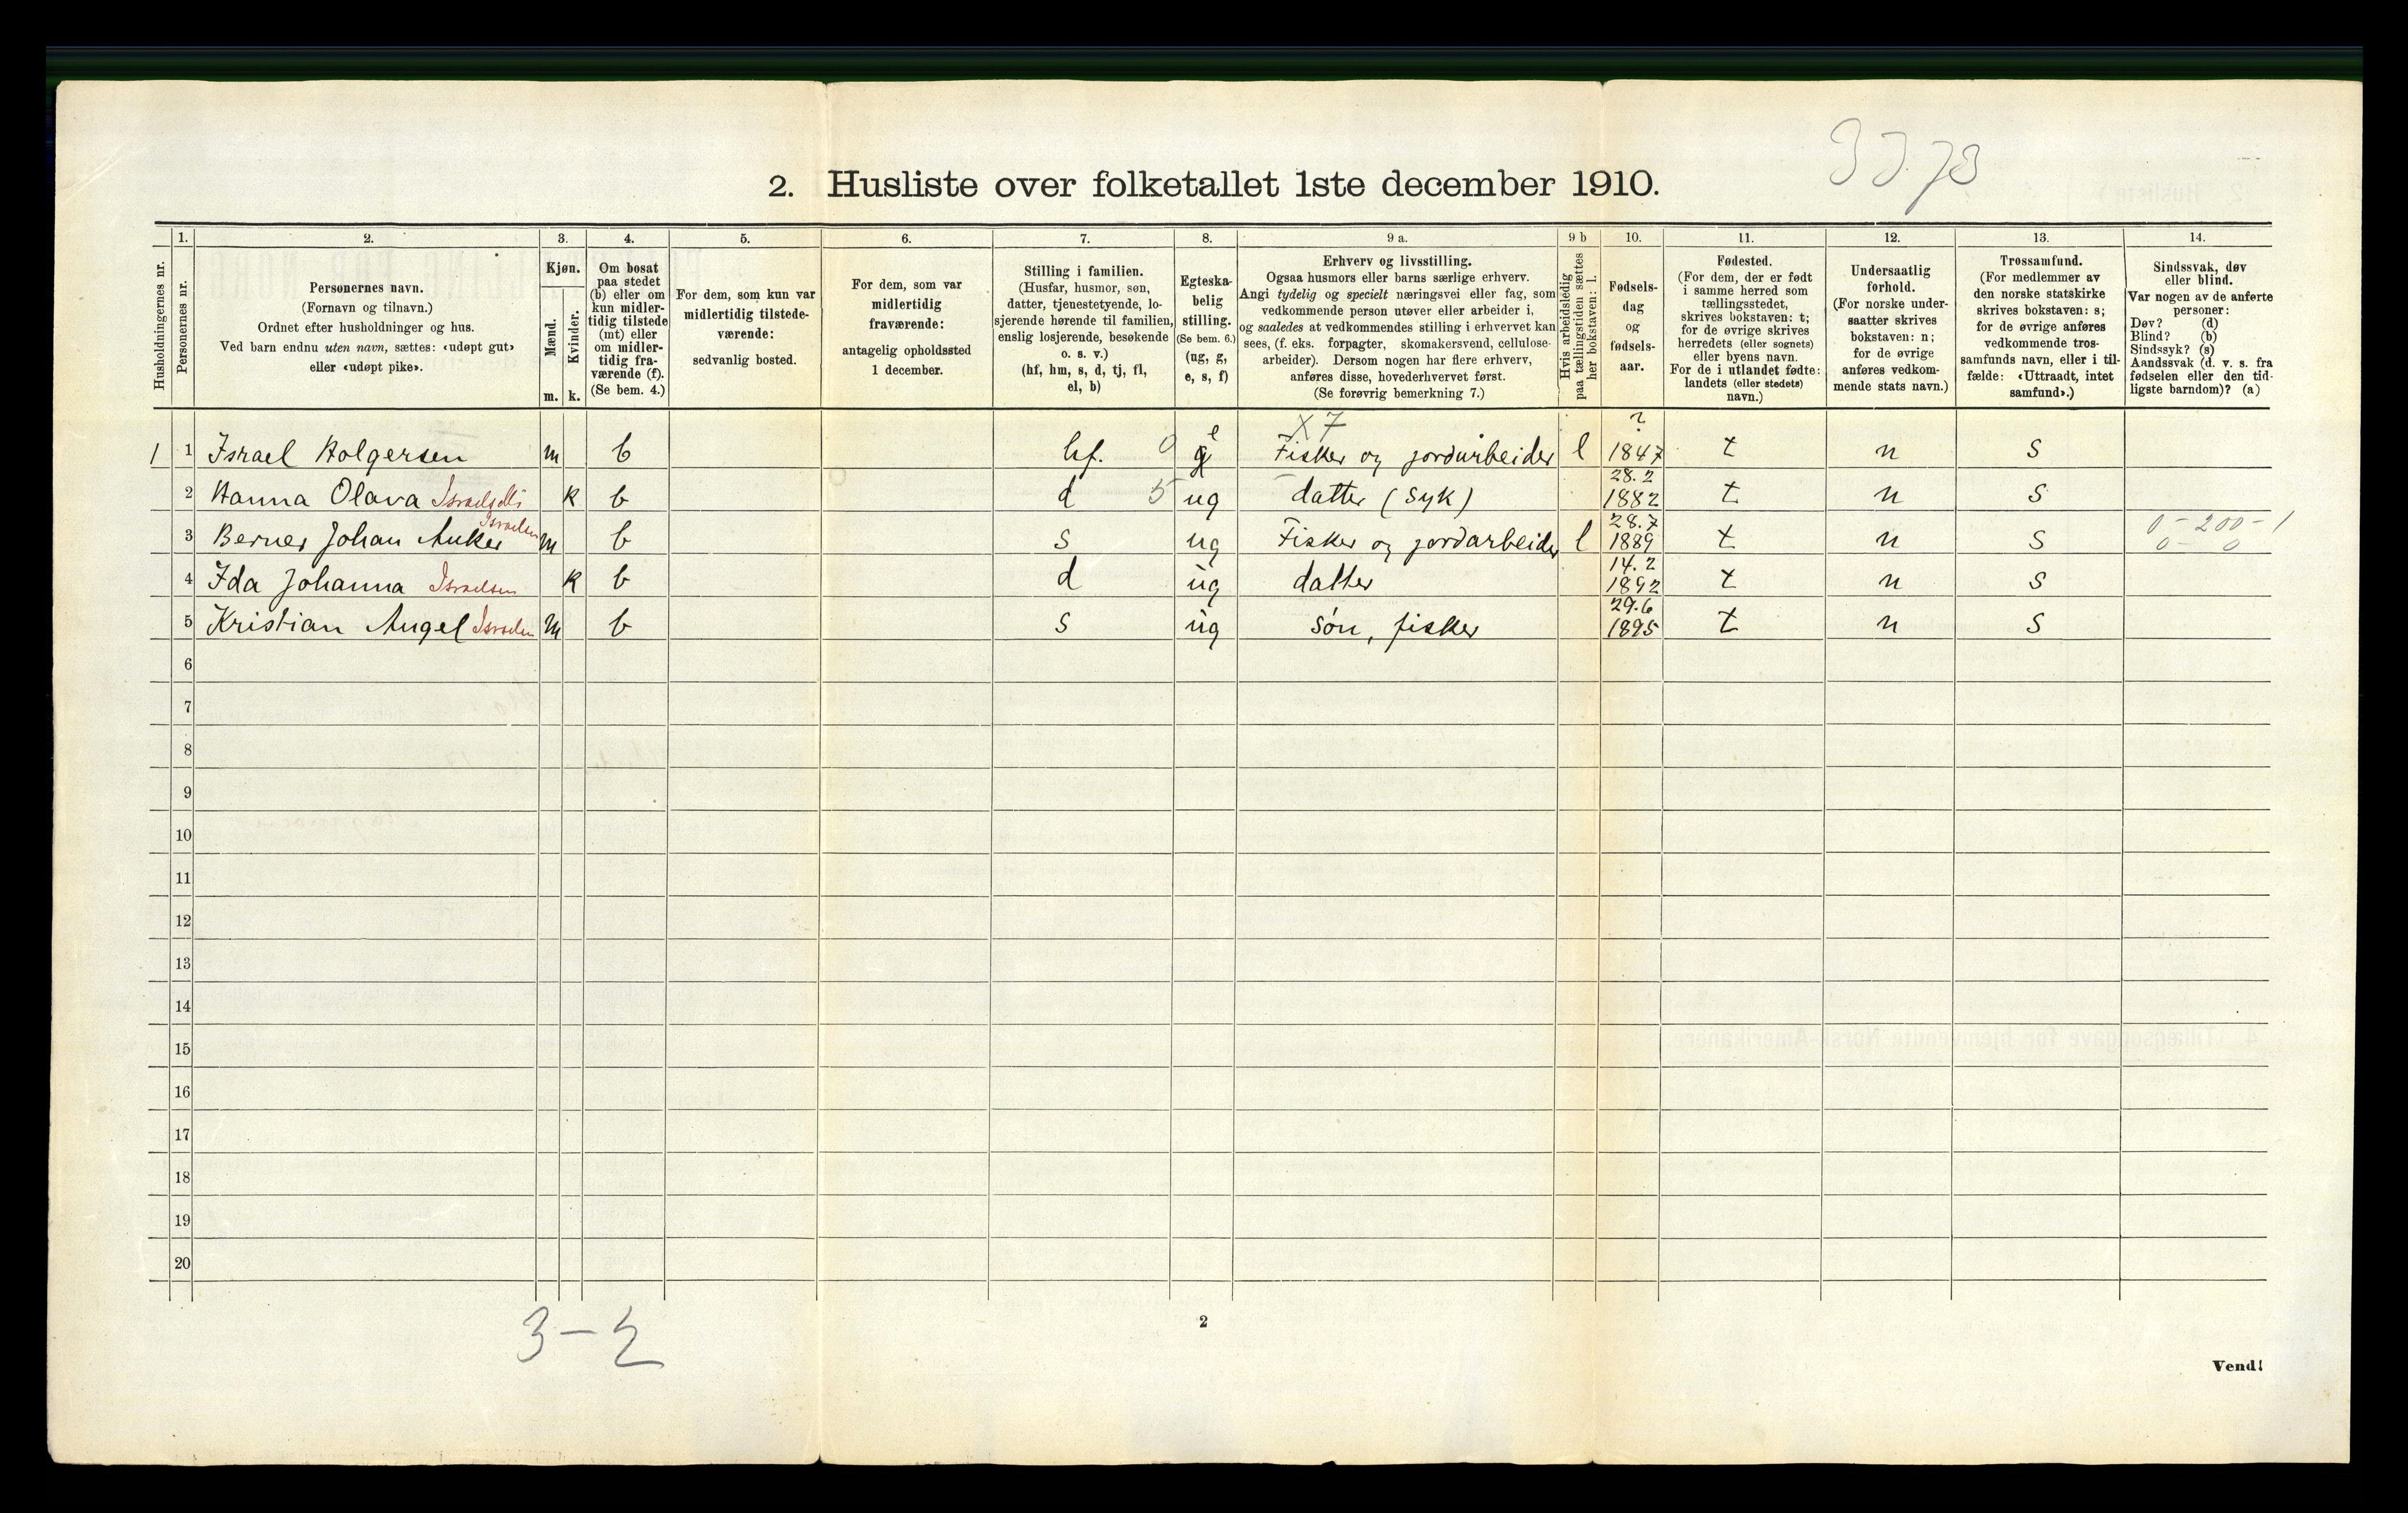 33.73
2. Husliste over folketallet 1ste december 1910.
Husholdningernes nr.
1.
Personernes nr.
2.
Personernes navn.
(Fornavn og tilnavn.)
Ordnet efter husholdninger og hus.
Ved barn endnu uten navn, sættes: «udøpt gut»
eller «udøpt pike».
3.
Kjøn.
Mænd.
Kvinder.
m. k.
4.
Om bosat
paa stedet
(b) eller om
kun midler-
tidig tilstede
(mt) eller
om midler-
tidig fra-
værende (f).
(Se bem. 4.)
5.
For dem, som kun var
midlertidig tilstede-
værende:
sedvanlig bosted.
6.
For dem, som var
midlertidig
fraværende:
antagelig opholdssted
1 december.
7.
Stilling i familien.
(Husfar, husmor, søn,
datter, tjenestetyende, lo-
sjerende hørende til familien,
enslig losjerende, besøkende
o. s. v.)
(hf, hm, s, d, tj, fl,
el, b)
8.
Egteska-
belig
stilling.
(Se bem. 6.)
(ug, g,
e, s, f)
9 a.
Erhverv og livsstilling.
Ogsaa husmors eller barns særlige erhverv.
Angi tydelig og specielt næringsvei eller fag, som
vedkommende person utøver eller arbeider i,
og saaledes at vedkommendes stilling i erhvervet kan
sees, (f. eks. forpagter, skomakersvend, cellulose-
arbeider). Dersom nogen har flere erhverv,
anføres disse, hovederhvervet først.
(Se forøvrig bemerkning 7.)
9 b
Hvis arbeidsledig
paa tællingstiden sættes
her bokstaven: l.
10.
Fødsels-
dag
og
fødsels-
aar.
11.
Fødested.
(For dem, der er født
i samme herred som
tællingsstedet,
skrives bokstaven: t;
for de øvrige skrives
herredets (eller sognets)
eller byens navn.
For de i utlandet fødte:
landets (eller stedets)
navn.)
12.
Undersaatlig
forhold.
(For norske under-
saatter skrives
bokstaven: n;
for de øvrige
anføres vedkom-
mende stats navn.)
13.
Trossamfund.
(For medlemmer av
den norske statskirke
skrives bokstaven: s;
for de øvrige anføres
vedkommende tros-
samfunds navn, eller i til-
fælde: «Uttraadt, intet
samfund».)
14.
Sindssvak, døv
eller blind.
Var nogen av de anførte
personer:
Døv? (d)
Blind? (b)
Sindssyk? (s)
Aandssvak (d. v. s. fra
fødselen eller den tid-
ligste barndom)? (a)
X7 ?
1 1 Israel Holgersen m b hf. 0 g e Fisker og jordarbeider l 1847 t n s
2 Hanna Olava Israelsdtr k b d 5 ug datter (syk) 28.2 1882 t n s
3 Berner Johan Anker Israelsen m b s ug Fisker og jordarbeider l 28.7 1889 t n s 0 - 200 - 1
0 - 0
4 Ida Johanna Israelsen k b d ug datter 14.2 1892 t n s
5 Kristian Angel Israelsen m b s ug søn, fisker 29.6 1895 t n s
6
7
8
9
10
11
12
13
14
15
16
17
18
19
20
3-2
2
Vend!